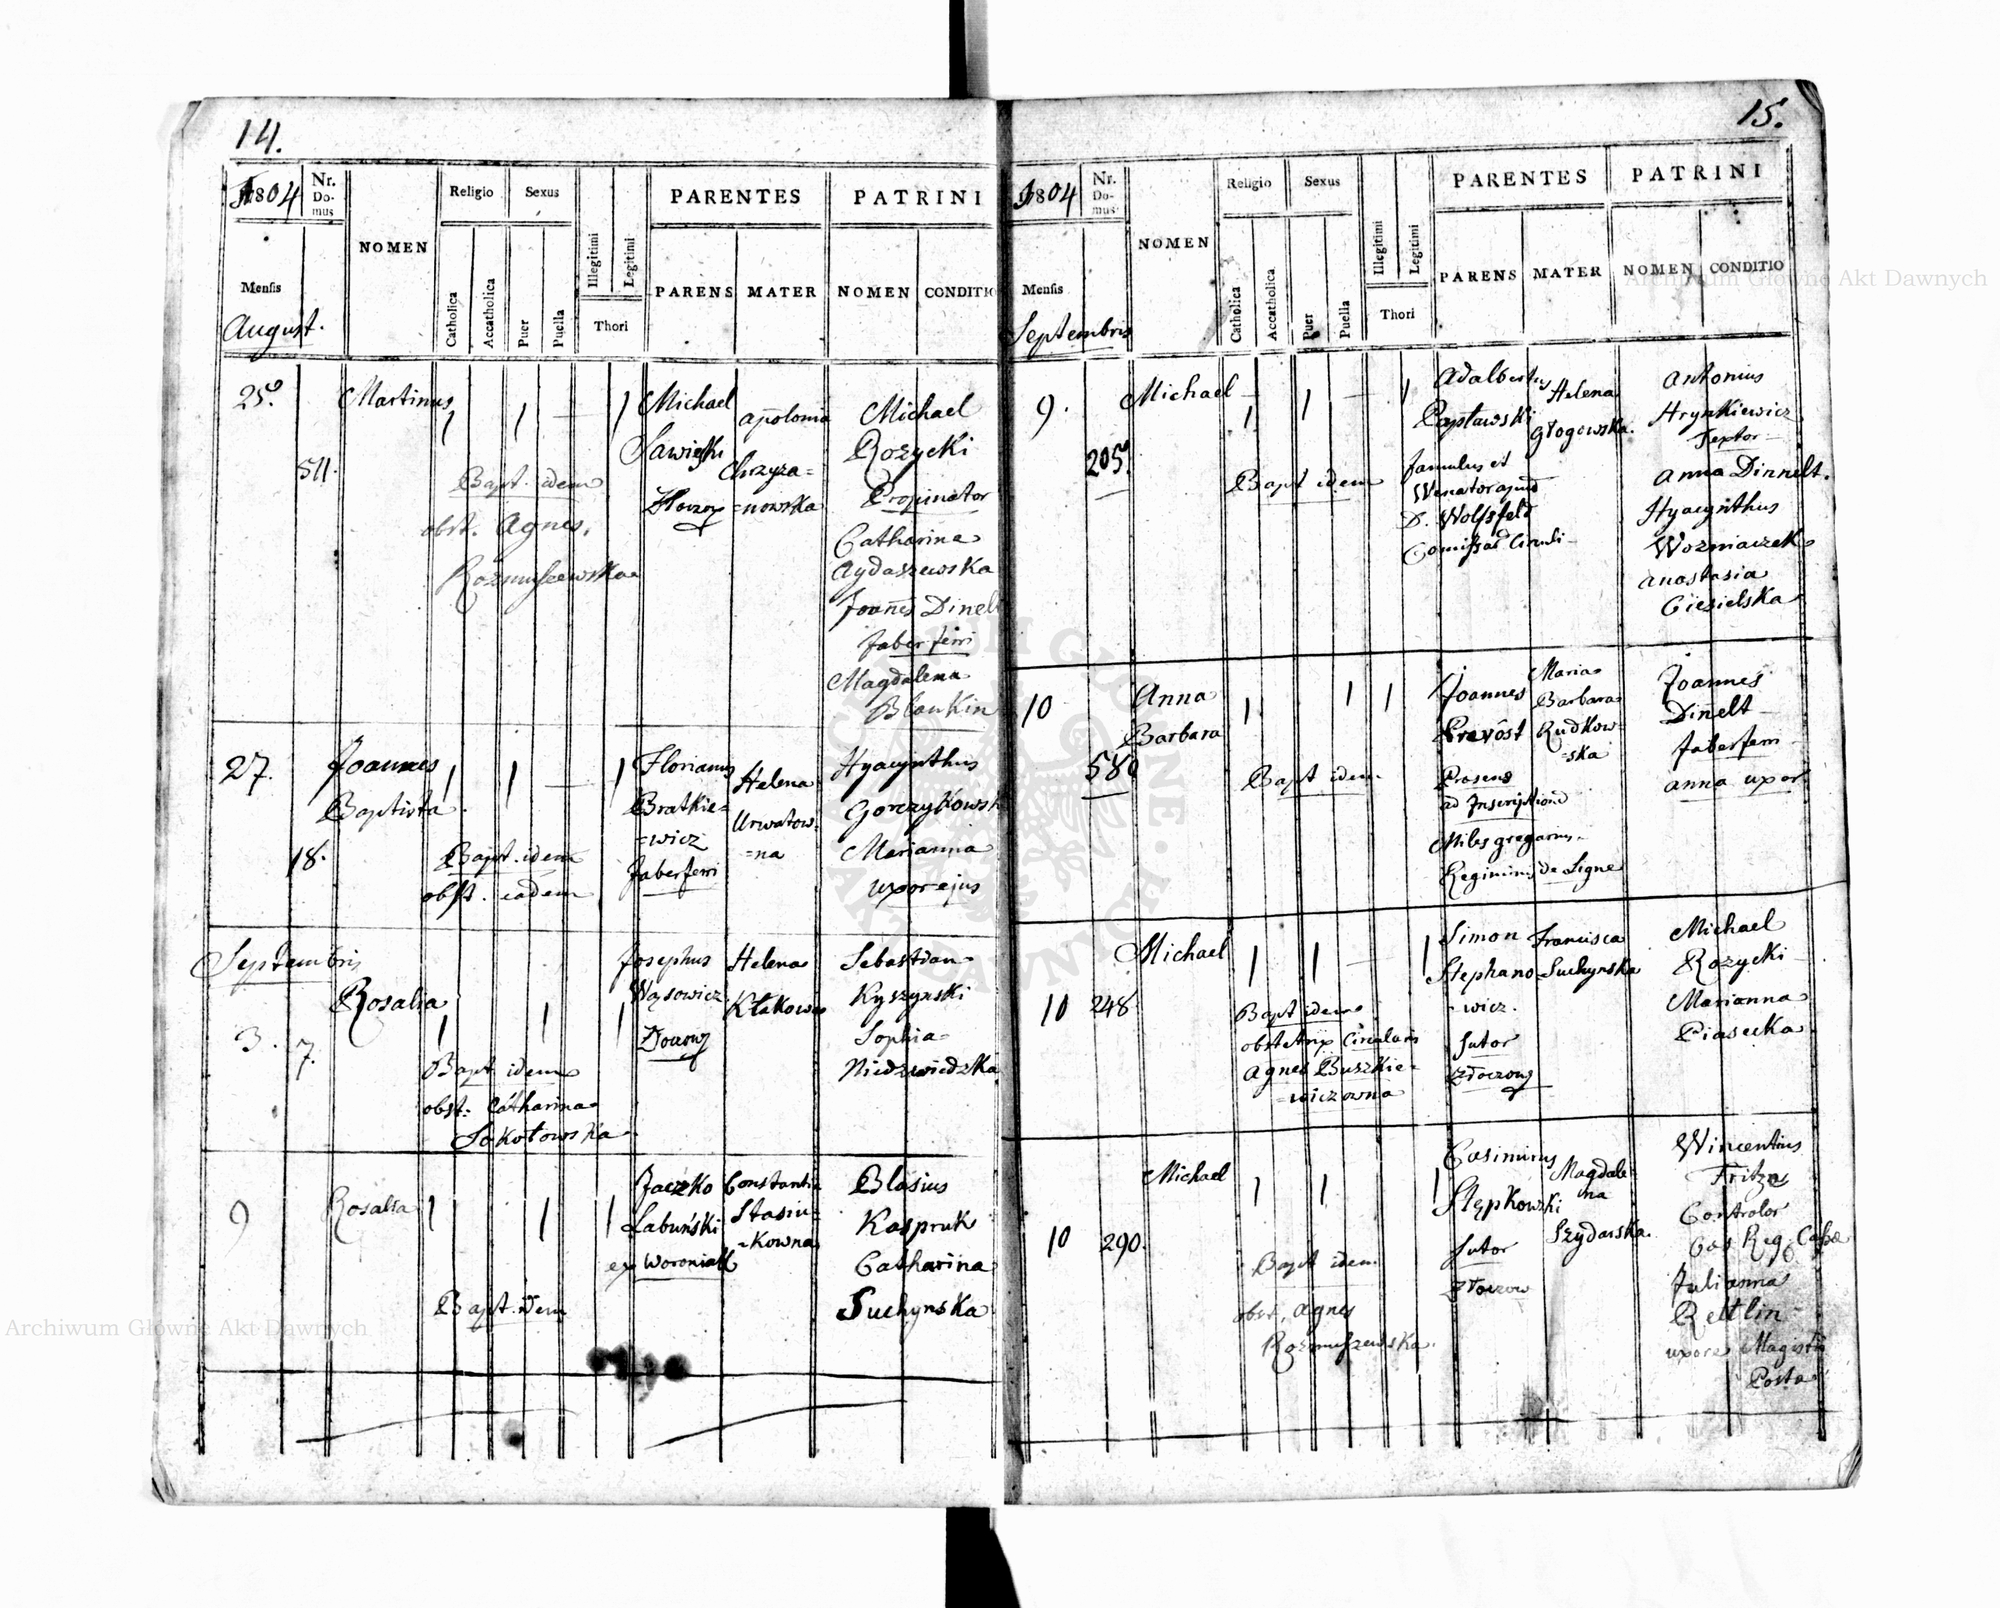 14.
1804
Nr. Do- mus
NOMEN
Religio
Sexus
Catholica
Accatholica
Puer
Puella
Illegitimi
Legitimi
Thori
PARENTES
PATRINI
PARENS
MATER
NOMEN
CONDITIO
Mensis
August.
25.
511.
Martinus
Bapt. idem
obst. Agnes,
Rozmuszewska
Michael
Sawicki
Złoczow
Apolonia
Chrzyza=
=nowska
Michael
Rozycki
Propinator
Catharina
Aydaszewska
Joannes Dinelt
faber ferri
Magdalena
Blankin
27.
18.
Joannes
Baptista
Bapt. idem
obst. eadem
Florianus
Bratkie=
=wicz
faber ferri
Helena
Urwatow=
=na
Hyacynthus
Gorczykowski
Marianna
uxor ejus
Septembris
3.
7.
Rosalia
Bapt idem
obst. Catharina
Sokołowska
Josephus
Wąsowicz
Złoczow
Helena
Kłakowa
Sebastian
Kyszynski
Sophia
Niedzwiedzka
9
Rosalia
Bapt. idem
Jaczko
Łabuński
ex Woroniak
Constantia
Stasiu=
=kowna
Blasius
Kaspruk
Catharina
Suchynska
15.
1804
Nr. Do- mus
NOMEN
Religio
Sexus
Catholica
Accatholica
Puer
Puella
Illegitimi
Legitimi
Thori
PARENTES
PATRINI
PARENS
MATER
NOMEN
CONDITIO
Mensis
Septembris
9.
205.
Michael
Bapt idem
Adalbertus
Papławski
famulus et
Venator apud
D. Wolfsfeld
Comissar Circuli
Helena
Głogowska.
Antonius
Hrynkiewicz
Textor
Anna Dinnelt.
Hyacynthus
Wozniaczek
Anastasia
Ciesielska
10
580
Anna
Barbara
Bapt idem
Joannes
Prevóst
Praesens
ad Inscriptionem
Miles gregarius
Regiminis de Ligne
Maria
Barbara
Rudkow
=ska
Joannes
Dinelt
faber ferri
anna uxor
10
248
Michael
Bapt idem
obstetrix Circularis
Agnes Buszkie=
=wiczowna
Simon
Stephano
=wicz.
Sutor
Złoczow
Francisca
Suchynska
Michael
Rozycki
Marianna
Piasecka
10
290.
Michael
Bapt idem
obst. Agnes
Rozmuszewska.
Casimirus
Stępkowski
Sutor
Złoczow
Magdale
na
Szydarska.
Wincentius
Fritza
Controlor
Caes Reg. Cassae
Julianna
Rettlin
uxore Magistri
Posta
Archiwum Główne Akt Dawnych
Archiwum Główne Akt Dawnych
ARCHIWUM GŁÓWNE AKT DAWNYCH